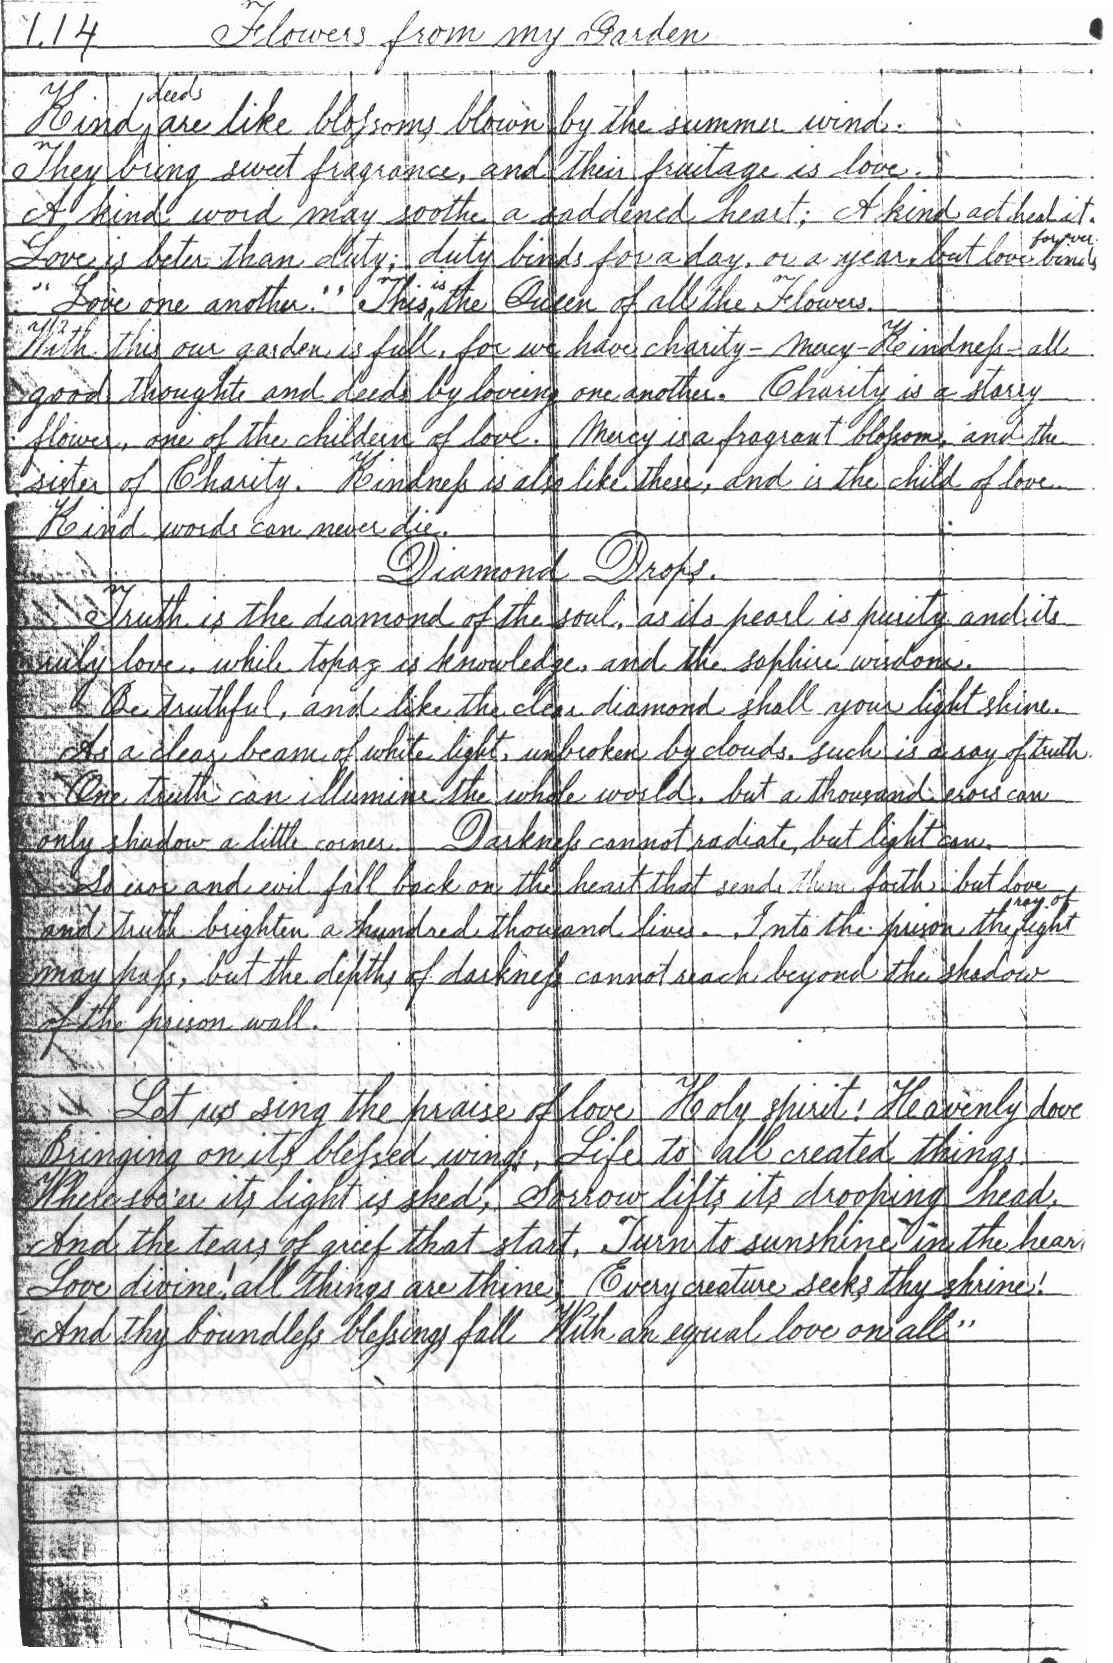 114 Flowers from my Garden
Kind deeds are like blossoms blown by the summer wind.
They bring sweet fragrance, and their fruitage is love.
A kind word may soothe a saddened heart; A kind act heal it.
Love is beter than duty; duty binds for a day, or a year, but love binds forever
"Love one another." This is the Queen of all the Flowers.
With this our garden is full, for we have charity - Mercy - Kindness - all
good thoughts and deeds by loveing one another. Charity is a starry
flower, one of the childern of love. Mercy is a fragrant blossom, and the
sister of Charity. Kindness is also like these, and is the child of love.
Kind words can never die.
Diamond Drops.
Truth is the diamond of the soul, as its pearl is purity and its
ruby love, while topaz is knowledge, and the saphire wisdom.
Be truthful, and like the clear diamond shall your light shine.
As a clear beam of white light, unbroken by clouds, such is a ray of truth.
One truth can illumine the whole world, but a thousand erors can
only shadow a little corner. Darkness cannot radiate, but light can.
So eror and evil fall back on the heart that sends them forth, but love
and truth brighten a hundred thousand lives. Into the prison the ray of light
may pass, but the depths of darkness cannot reach beyond the shadow
of the prison wall.
Let us sing the praise of love Holy spirit! Heavenly dove
Bringing on its blessed wings, Life to all created things.
Where soe'er its light is shed, Sorrow lifts its drooping head,
And the tears of grief that start, Turn to sunshine in the hear
Love divine! all things are thine, Every creature seeks thy shrine!
And thy boundless blessings fall With an equal love on all"